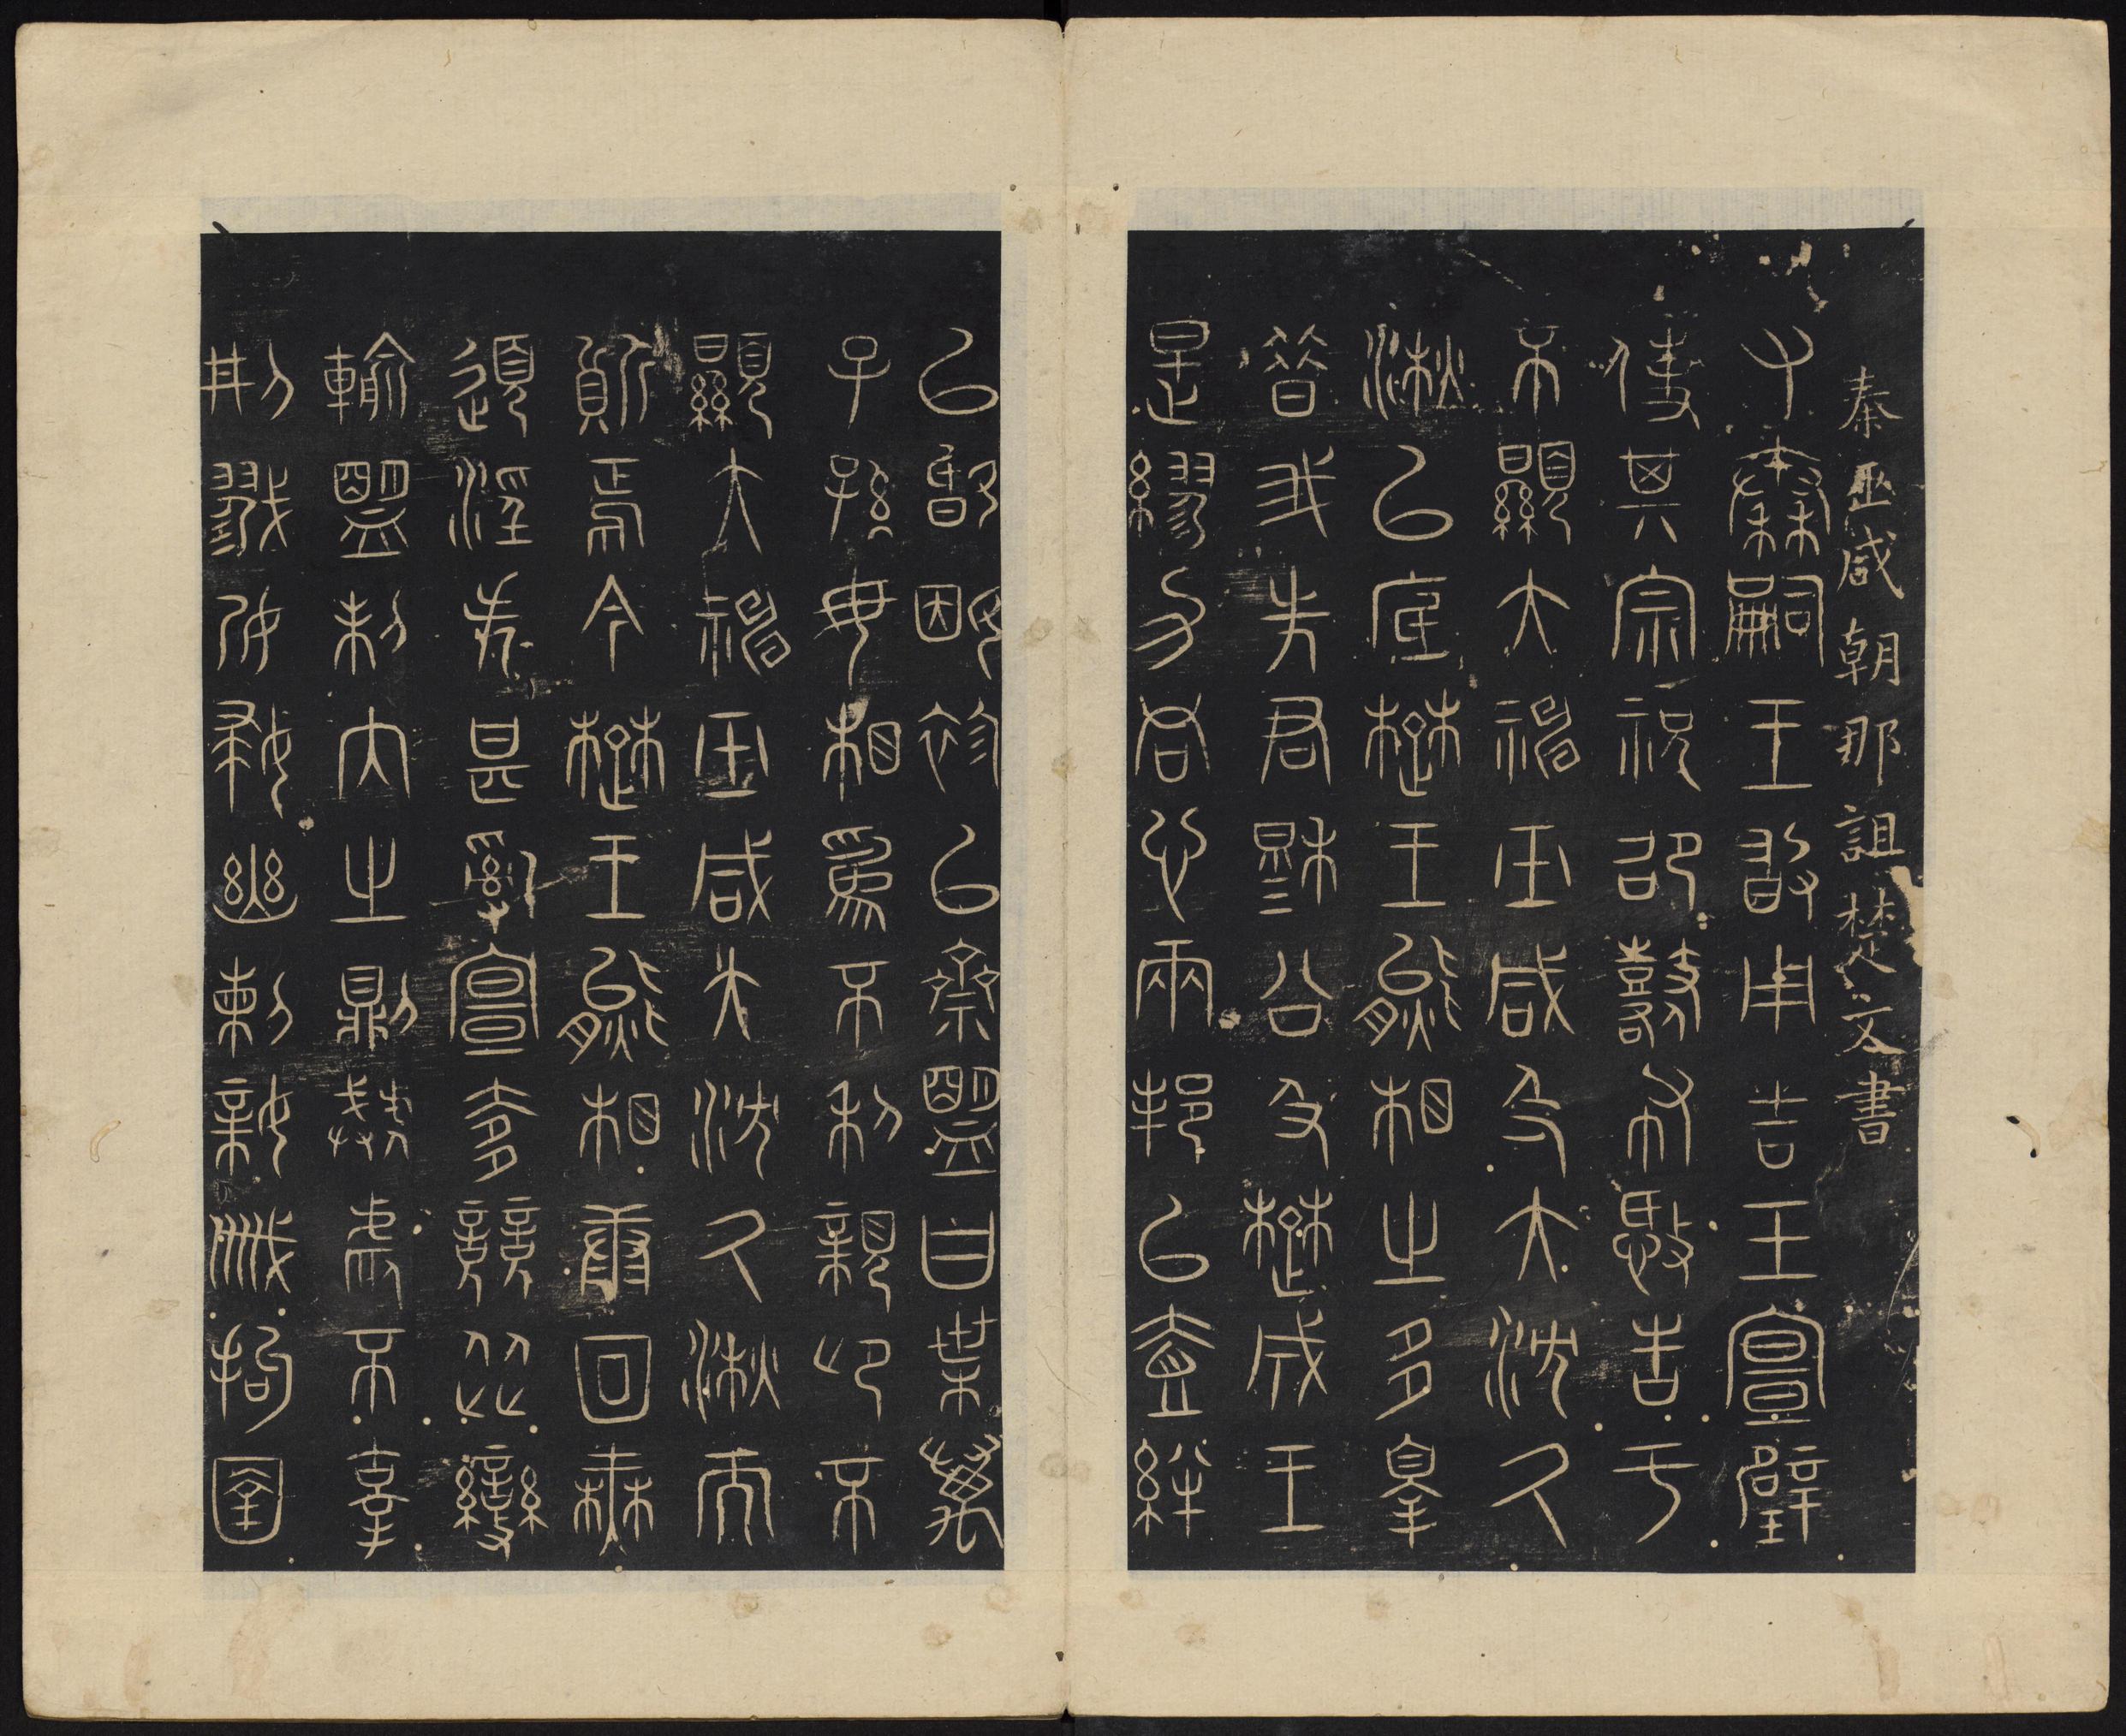 秦巫咸朝那詛楚文書
又秦嗣王敢用吉玉宣璧
使其宗祝邵鼛布憝告于
不顯大神巫咸及大沈久
湫以底楚王熊相之多辠
昔我先君穆公及楚成王
是繆力同心兩邦以壹絆
以婚姻袗以齋盟曰枼萬
子孫毋相為不利親卬不
顯大神巫咸大沈久湫而
質焉今楚王熊相康回無
道淫失甚亂宣奓競從變
輸盟刺內之則暴虐不辜
刑戮孕婦幽刺親戚拘圉